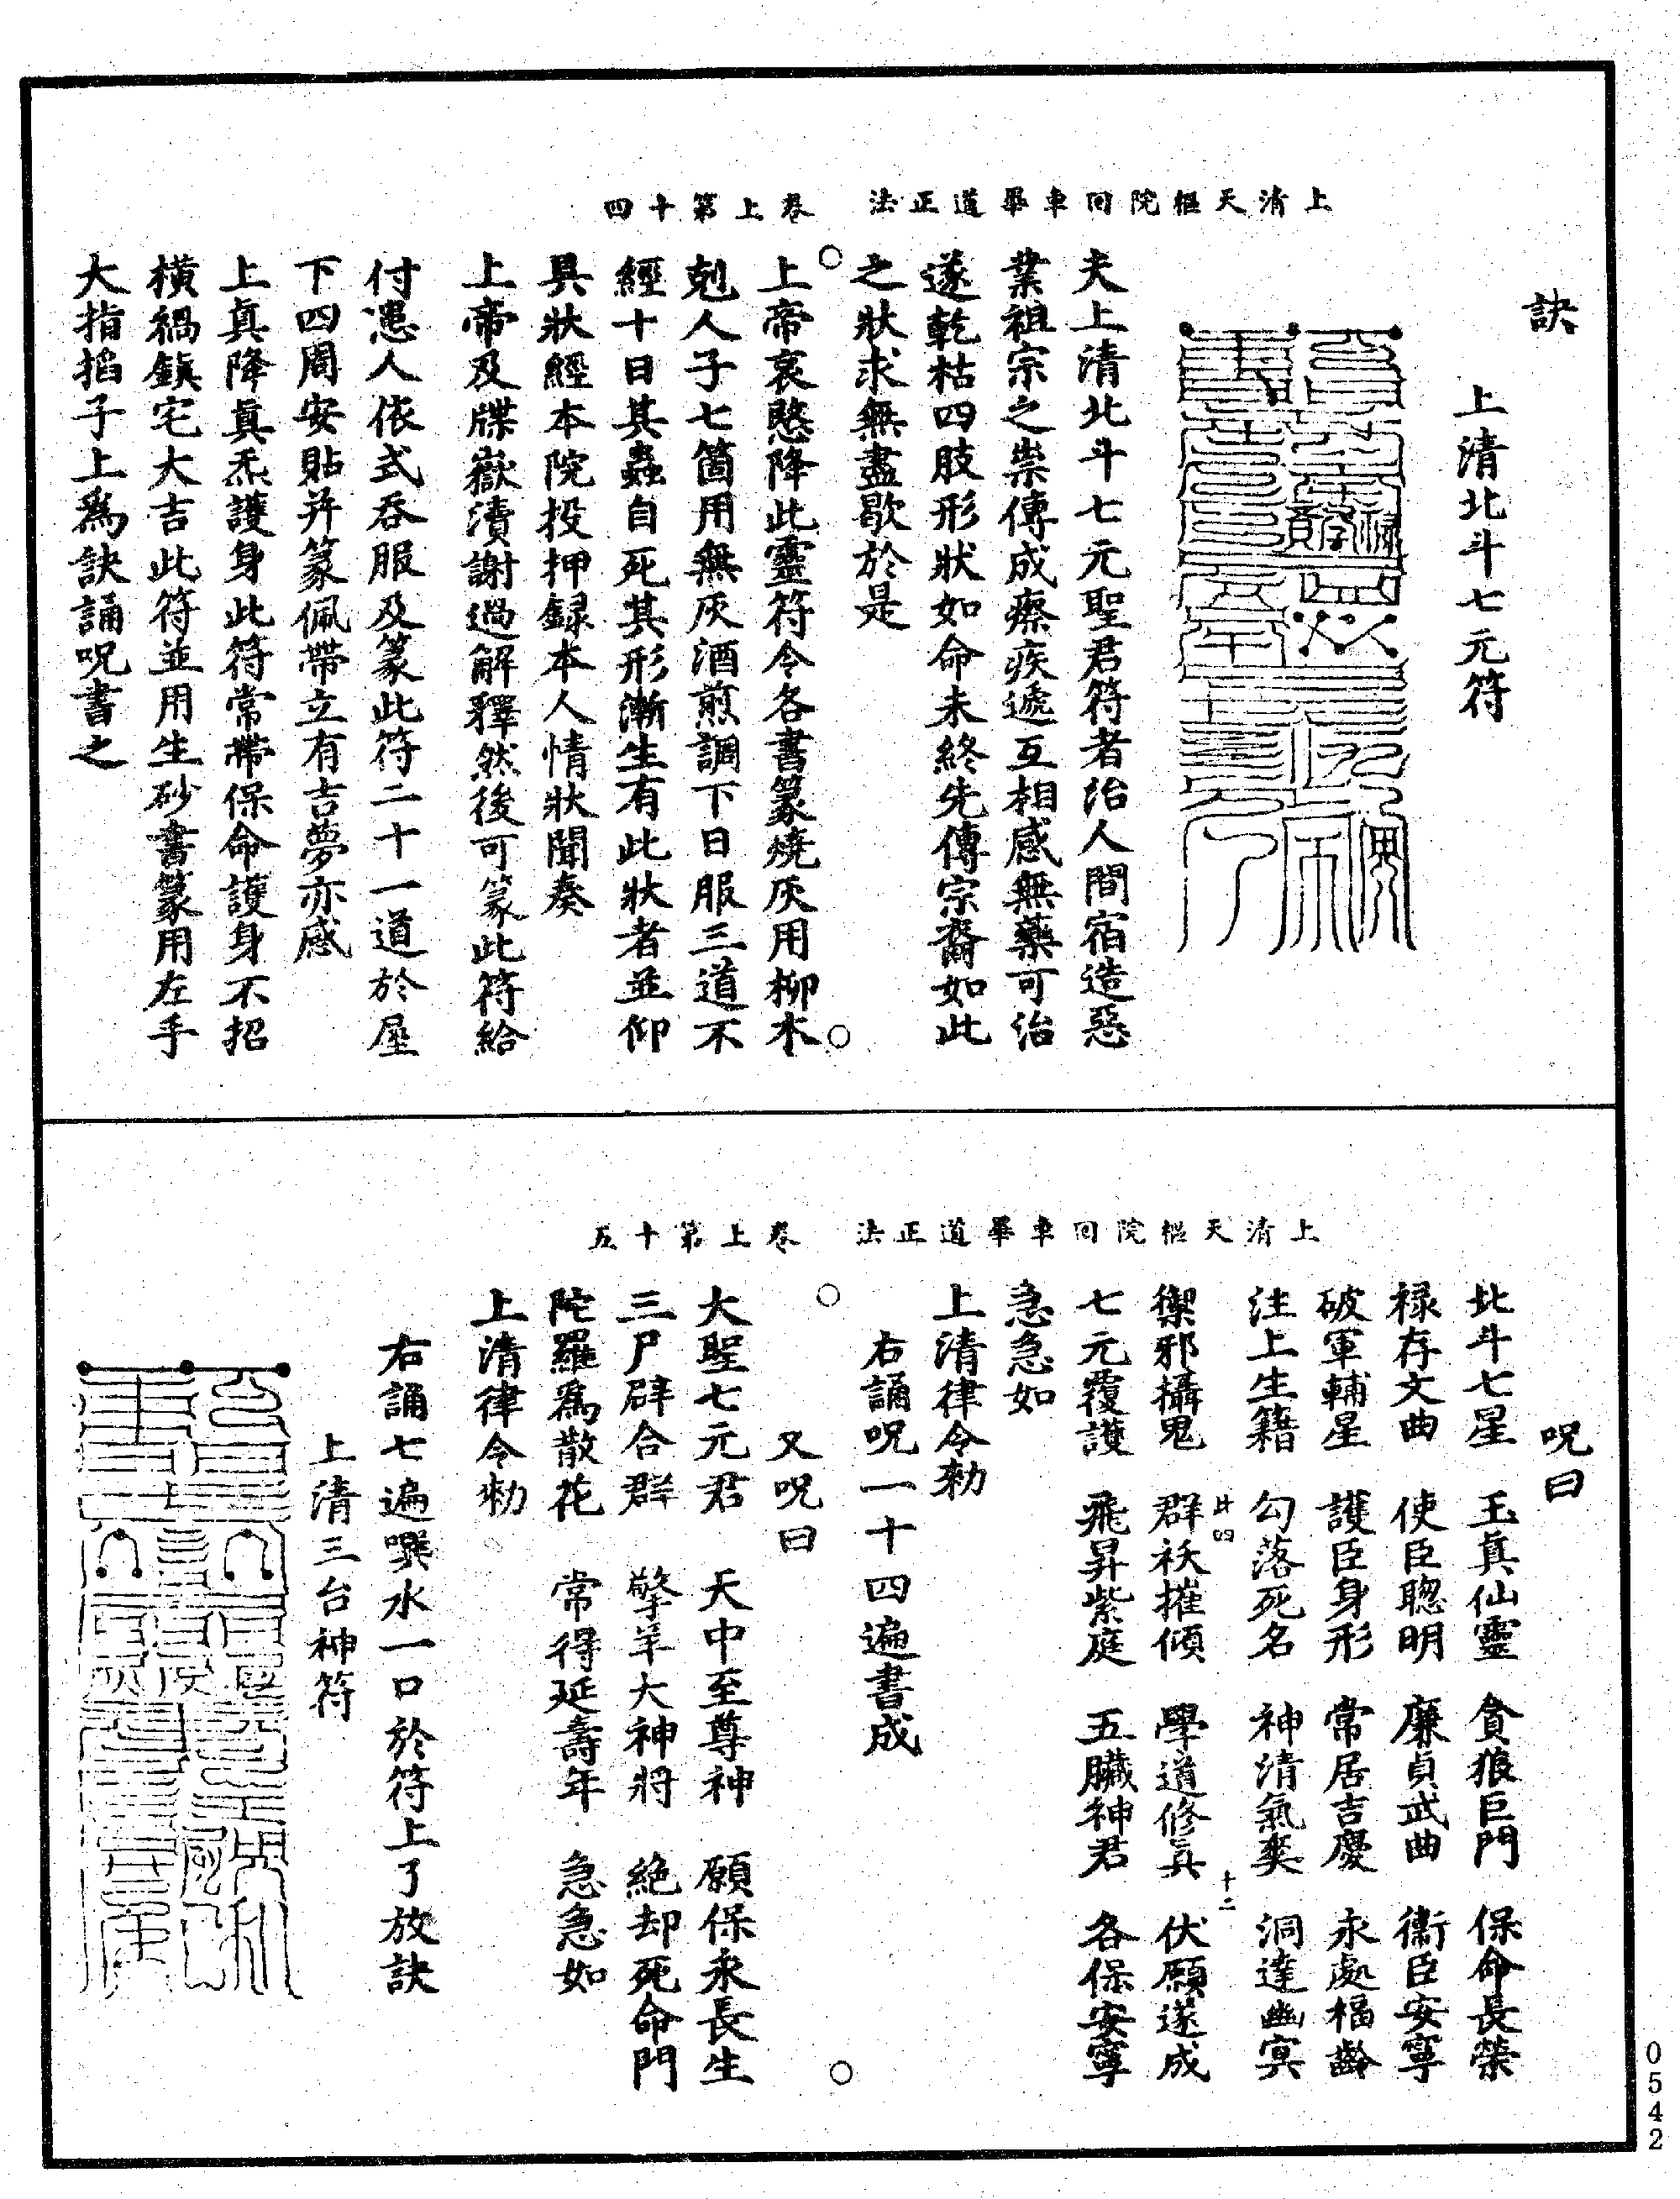 上清天樞院回車畢道正法　卷上第十四
訣
上清北斗七元符
夫上清北斗七元聖君符者治人間宿造惡
業祖宗之祟傳成瘵疾遞互相感無藥可治
遂乾枯四肢形狀如命未終先傳宗裔如此
之狀求無盡歇於是
上帝哀愍降此靈符令各書篆燒灰用柳木
剋人子七箇用無灰酒煎調下日服三道不
經十日其蟲自死其形漸生有此狀者並仰
具狀經本院投押録本人情狀聞奏
上帝及牒嶽瀆謝過解釋然後可篆此符給
付患人依式吞服及篆此符二十一道於屋
下四周安貼并篆佩帶立有吉夢亦感
上真降真炁護身此符常帶保命護身不招
橫禍鎮宅大吉此符並用生砂書篆用左手
大指掐子上爲訣誦呪書之
上清天樞院回車畢道正法　卷上第十五
呪曰
北斗七星　玉真仙靈　貪狼巨門　保命長榮
禄存文曲　使臣聰明　廉貞武曲　衞臣安寧
破軍輔星　護臣身形　常居吉慶　永處福齡
注上生籍　勾落死名　神清氣爽　洞達幽冥
廾四　十二
禦邪攝鬼　群祅摧傾　學道修真　伏願遂成
七元覆護　飛昇紫庭　五臟神君　各保安寧
急急如
上清律令勑
右誦呪一十四遍書成
又呪曰
大聖七元君　天中至尊神　願保永長生
三尸辟合群　擎羊大神將　絶却死命門
陀羅爲散花　常得延壽年　急急如
上清律令勑
右誦七遍噀水一口於符上了放訣
上清三台神符
0542